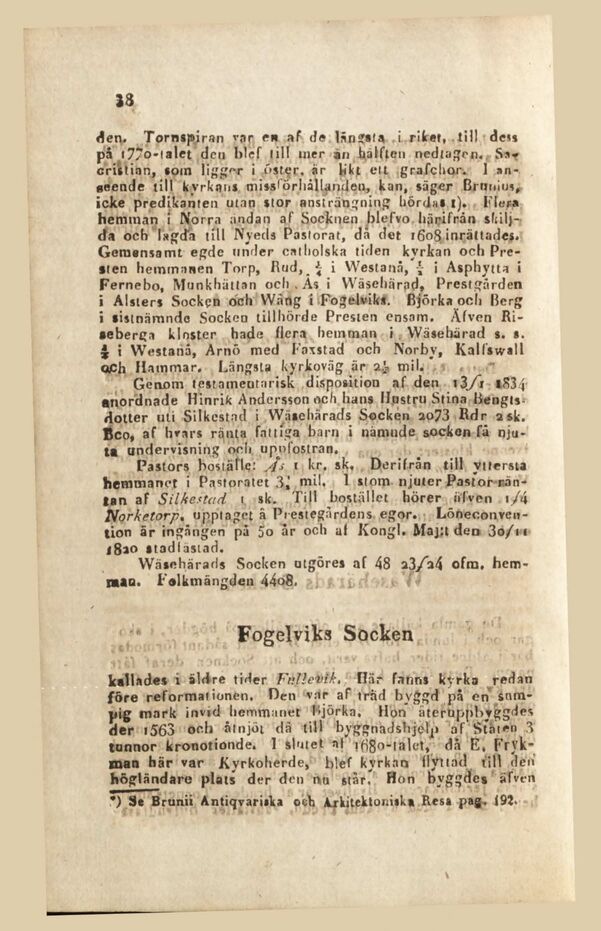 38
den. Tornspiran var en af de längsta i riket, till dess
på 1770-talet den blef till mer än hälften nedtagen. Sa-
cristian, som ligger i öster, är likt ett grafchor. I an-
seende till kyrkans missförhållanden, kan, säger Brunius,
icke predikanten utan stor ansträngning hördas 1). Flera
hemman i Norra ändan af Socknen blefvo härifrån skilj-
da och lagda till Nyeds Pastorat, då det 1608 inrättades.
Gemensamt egde under catholska tiden kyrkan och Pre-
sten hemmanen Torp, Rud, i Westanå, i Asphytta i
Fernebo, Munkhättan och Ås i Wäsehärad, Prestgården
i Alsters Socken och Wång i Fogelviks. Björka och Berg
i sistnämnde Socken tillhörde Presten ensam. Äfven Ri-
seberga kloster hade flera hemman i Wäsehärad s. s.
i Westanå, Arnö med Faxstad och Norby, Kalfswall
och Hammar. Längsta kyrkoväg är mil.
Genom testamentarisk disposition af den 13/1 1834
anordnade Hinrik Andersson och hans Hustru Stina Bengts-
dotter uti Silkestad i Wäsehärads Socken 2073 Rdr 2 sk.
Bco, af hvars ränta fattiga barn i nämnde socken få nju-
ta undervisning och uppfostran.
Pastors boställe: Ås 1 kr. sk. Derifrån till yttersta
hemmanet i Pastoratet mil. I stom njuter Pastor rän-
tan af Silkestad 1 sk. Till bostället hörer äfven 1/4
Norketorp, upptaget å Prestegårdens egor. Löneconven-
tion är ingången på 50 år och af Kongl. Maj:t den 30/11
1820 stadfästad.
Wäsehärads Socken utgöres af 48 23/24 ofm. hem-
man. Folkmängden 4408.
Fogelviks Socken
kallades i äldre tider Fullevik. Här fanns kyrka redan
före reformationen. Den var af träd byggd på en sum-
pig mark invid hemmanet Björka. Hon återuppbyggdes
der 1563 och åtnjöt då till byggnadshjelp af Staten 3
tunnor kronotionde. I slutet af 1680-talet, då E. Fryk-
man här var Kyrkoherde, blef kyrkan flyttad till den
högländare plats der den nu står. Hon byggdes äfven
*) Se Brunii Antiqvariska och Arkitektoniska Resa pag. 192.